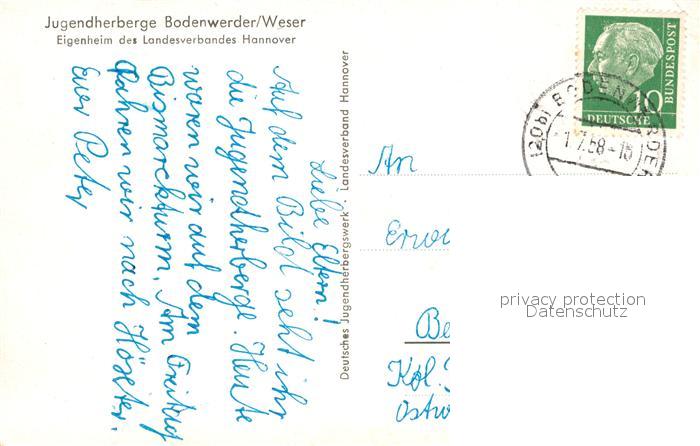 Jugendherberge Bodenwerder/Weser
Eigenheim des Landesverbandes Hannover
Liebe Eltern!
Auf dem Bild seht ihr
die Jugendherberge. Heute
waren wir auf dem
Bismarckturm. Am Freitag
fahren wir nach Höxter.
Euer Peter
Deutsches Jugendherbergswerk · Landesverband Hannover
DEUTSCHE
BUNDESPOST
10
(20b) BODENWERDER
-1.7.58-18
An
Erwi
Be
Kol.
Ostw
privacy protection
Datenschutz